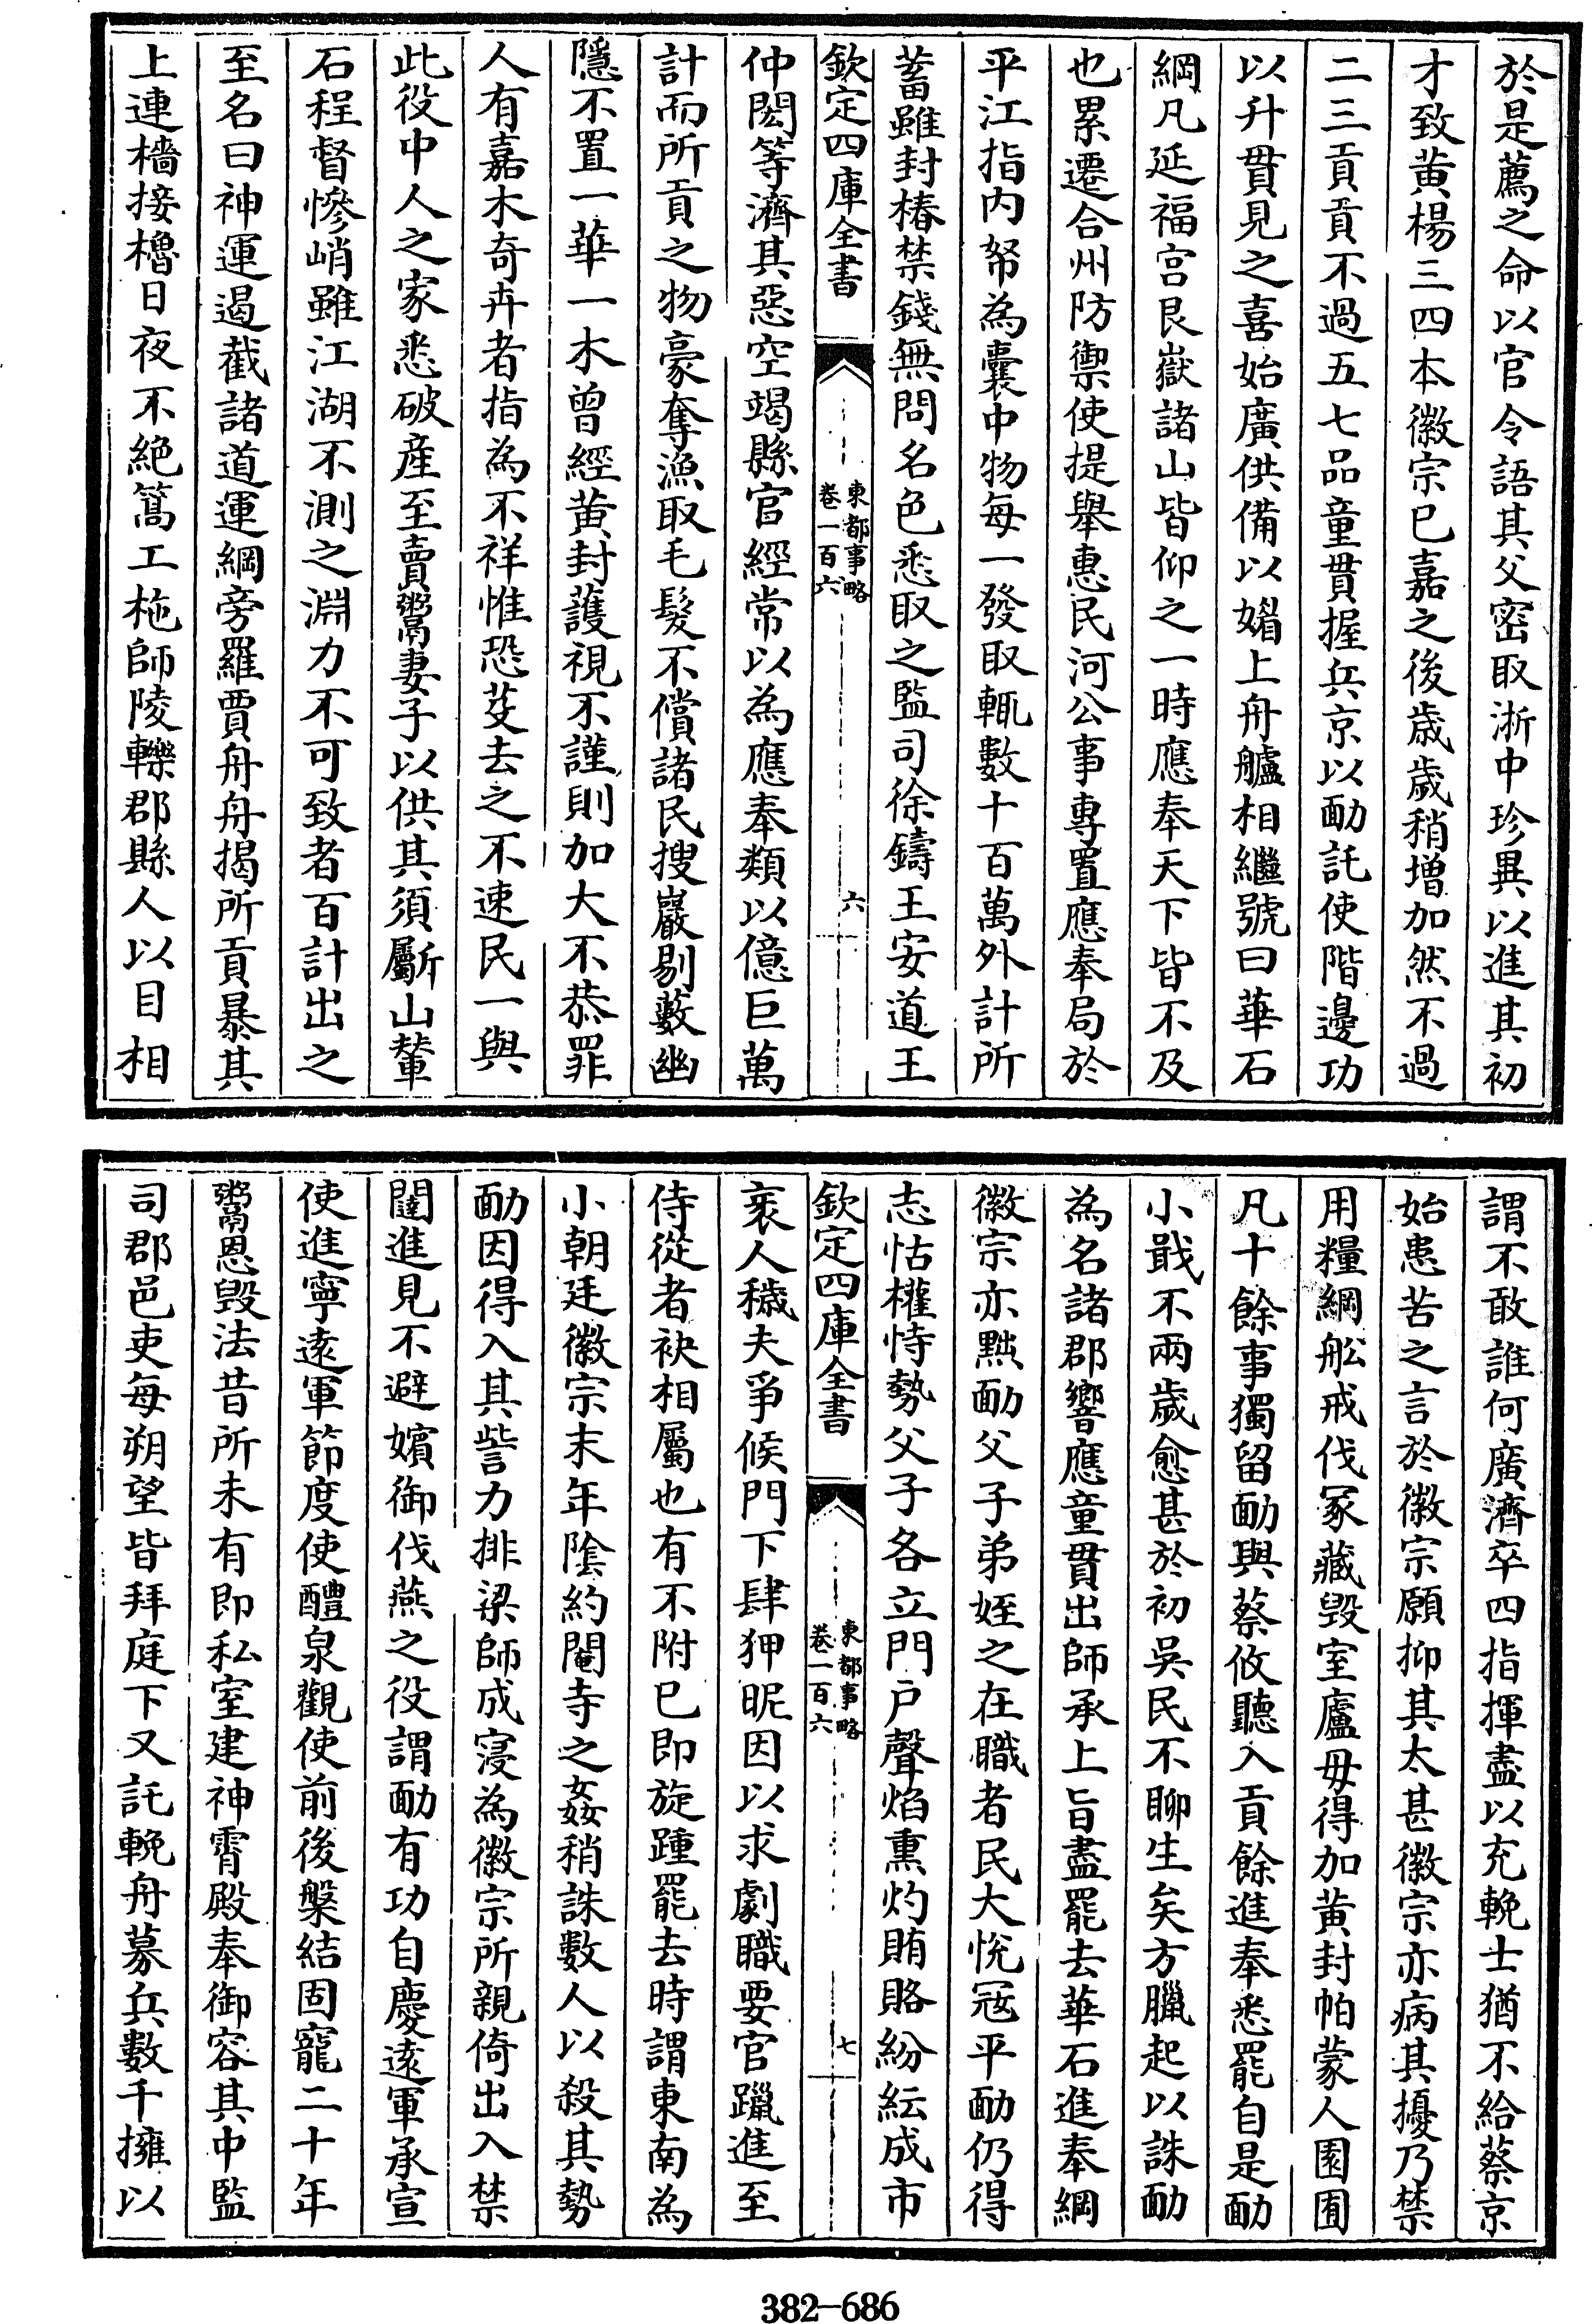 於是薦之命以官令語其父密取浙中珍異以進其初
才致黄楊三四本徽宗已嘉之後歲歲稍增加然不過
二三貢貢不過五七品童貫握兵京以勔託使階邊功
以升貫見之喜始廣供備以媚上舟艫相繼號曰華石
綱凡延福宫艮嶽諸山皆仰之一時應奉天下皆不及
也累遷合州防禦使提舉惠民河公事專置應奉局於
平江指内帑為囊中物每一發取輒數十百萬外計所
蓄雖封樁禁錢無問名色悉取之監司徐鑄王安道王
欽定四庫全書
東都事略
卷一百六
六
仲閎等濟其惡空竭縣官經常以為應奉類以億巨萬
計而所貢之物豪奪漁取毛髮不償諸民搜巖剔藪幽
隱不置一華一木曾經黄封護視不謹則加大不恭罪
人有嘉木奇卉者指為不祥惟恐芟去之不速民一與
此役中人之家悉破産至賣鬻妻子以供其須斸山輦
石程督慘峭雖江湖不測之淵力不可致者百計出之
至名曰神運遏截諸道運綱旁羅賈舟舟揭所貢暴其
上連檣接櫓日夜不絶篙工柂師陵轢郡縣人以目相
謂不敢誰何廣濟卒四指揮盡以充輓士猶不給蔡京
始患苦之言於徽宗願抑其太甚徽宗亦病其擾乃禁
用糧綱舩戒伐冢藏毁室廬毋得加黄封帕蒙人園囿
凡十餘事獨留勔與蔡攸聽入貢餘進奉悉罷自是勔
小戢不兩歲愈甚於初吳民不聊生矣方臘起以誅勔
為名諸郡響應童貫出師承上旨盡罷去華石進奉綱
徽宗亦黜勔父子弟姪之在職者民大悅冦平勔仍得
志怙權恃勢父子各立門户聲焰熏灼賄賂紛紜成市
欽定四庫全書
東都事略
卷一百六
七
衺人穢夫爭候門下肆狎昵因以求劇職要官躐進至
侍從者袂相屬也有不附已即旋踵罷去時謂東南為
小朝廷徽宗末年陰約閹寺之姦稍誅數人以殺其勢
勔因得入其訾力排梁師成寖為徽宗所親倚出入禁
闥進見不避嬪御伐燕之役謂勔有功自慶遠軍承宣
使進寧遠軍節度使醴泉觀使前後槃結固寵二十年
鬻恩毁法昔所未有即私室建神霄殿奉御容其中監
司郡邑吏每朔望皆拜庭下又託輓舟募兵數千擁以
382-686